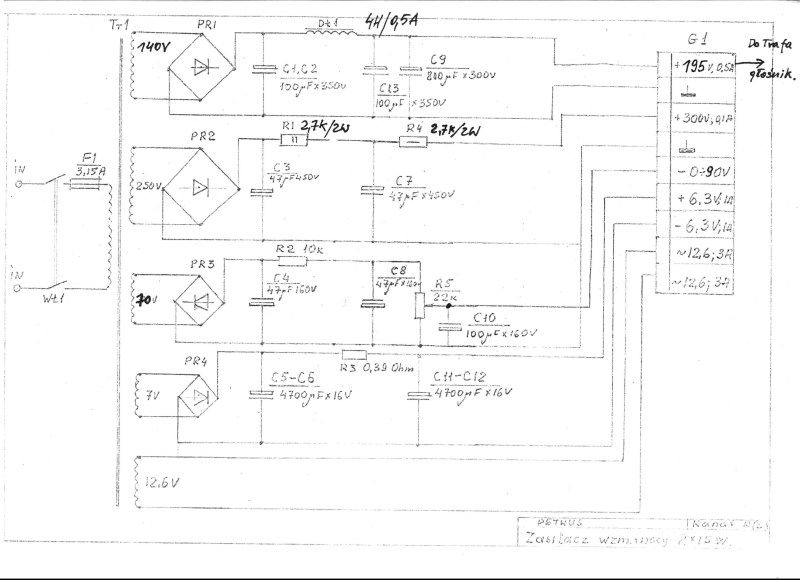 Tr1
PR1
Dł1
4H/0,5A
140V
C1,C2
100µF×350V
C13
100µF×350V
C9
800µF×300V
G1
+195V,0,5A
Do Trafa
głośnik.
+300V,0,1A
-0÷90V
+6,3V,1A
-6,3V,1A
~12,6;3A
~12,6;3A
PR2
R1 2,7K/2W
R4 2,7K/2W
250V
C3
47µF450V
C7
47µF×450V
IN
F1
3,15A
IN
Wł1
PR3
R2 10k
70V
C4
47µF160V
C8
47µF×160V
R5
22k
C10
100µF×160V
PR4
R3 0,39 Ohm
7V
C5-C6
4700µF×16V
C11-C12
4700µF×16V
12,6V
PETRUS
Zasilacz wzmmacy 2×15W.